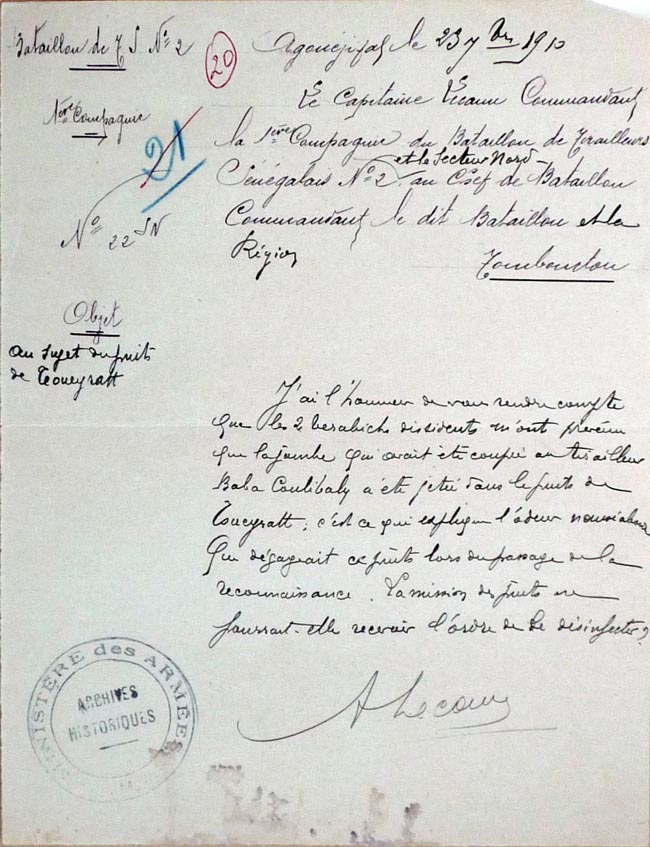 Bataillon de T S N° 2
20
le 23 7bre 1910
1ère Compagnie
21
N° 22 SN
Le Capitaine Commandant
la 1ère Compagnie du Bataillon de Tirailleurs
et le Secteur Nord
Sénégalais N° 2 au Chef de Bataillon
Commandant le dit Bataillon et la
Région
Tombouctou
Objet
au sujet du puits
de Toueyratt
J'ai l'honneur de vous rendre compte
que les 2 berabiche dissidents m'ont prévenu
que la jambe qui avait été coupée au tirailleur
Baba Coulibaly a été jetée dans le puits de
Toueyratt, c'est ce qui explique l'odeur
qui dégageait ce puits lors du passage de la
reconnaissance. La mission des puits ne
pourrait-elle recevoir l'ordre de le désinfecter ?
MINISTÈRE des ARMÉES
ARCHIVES
HISTORIQUES